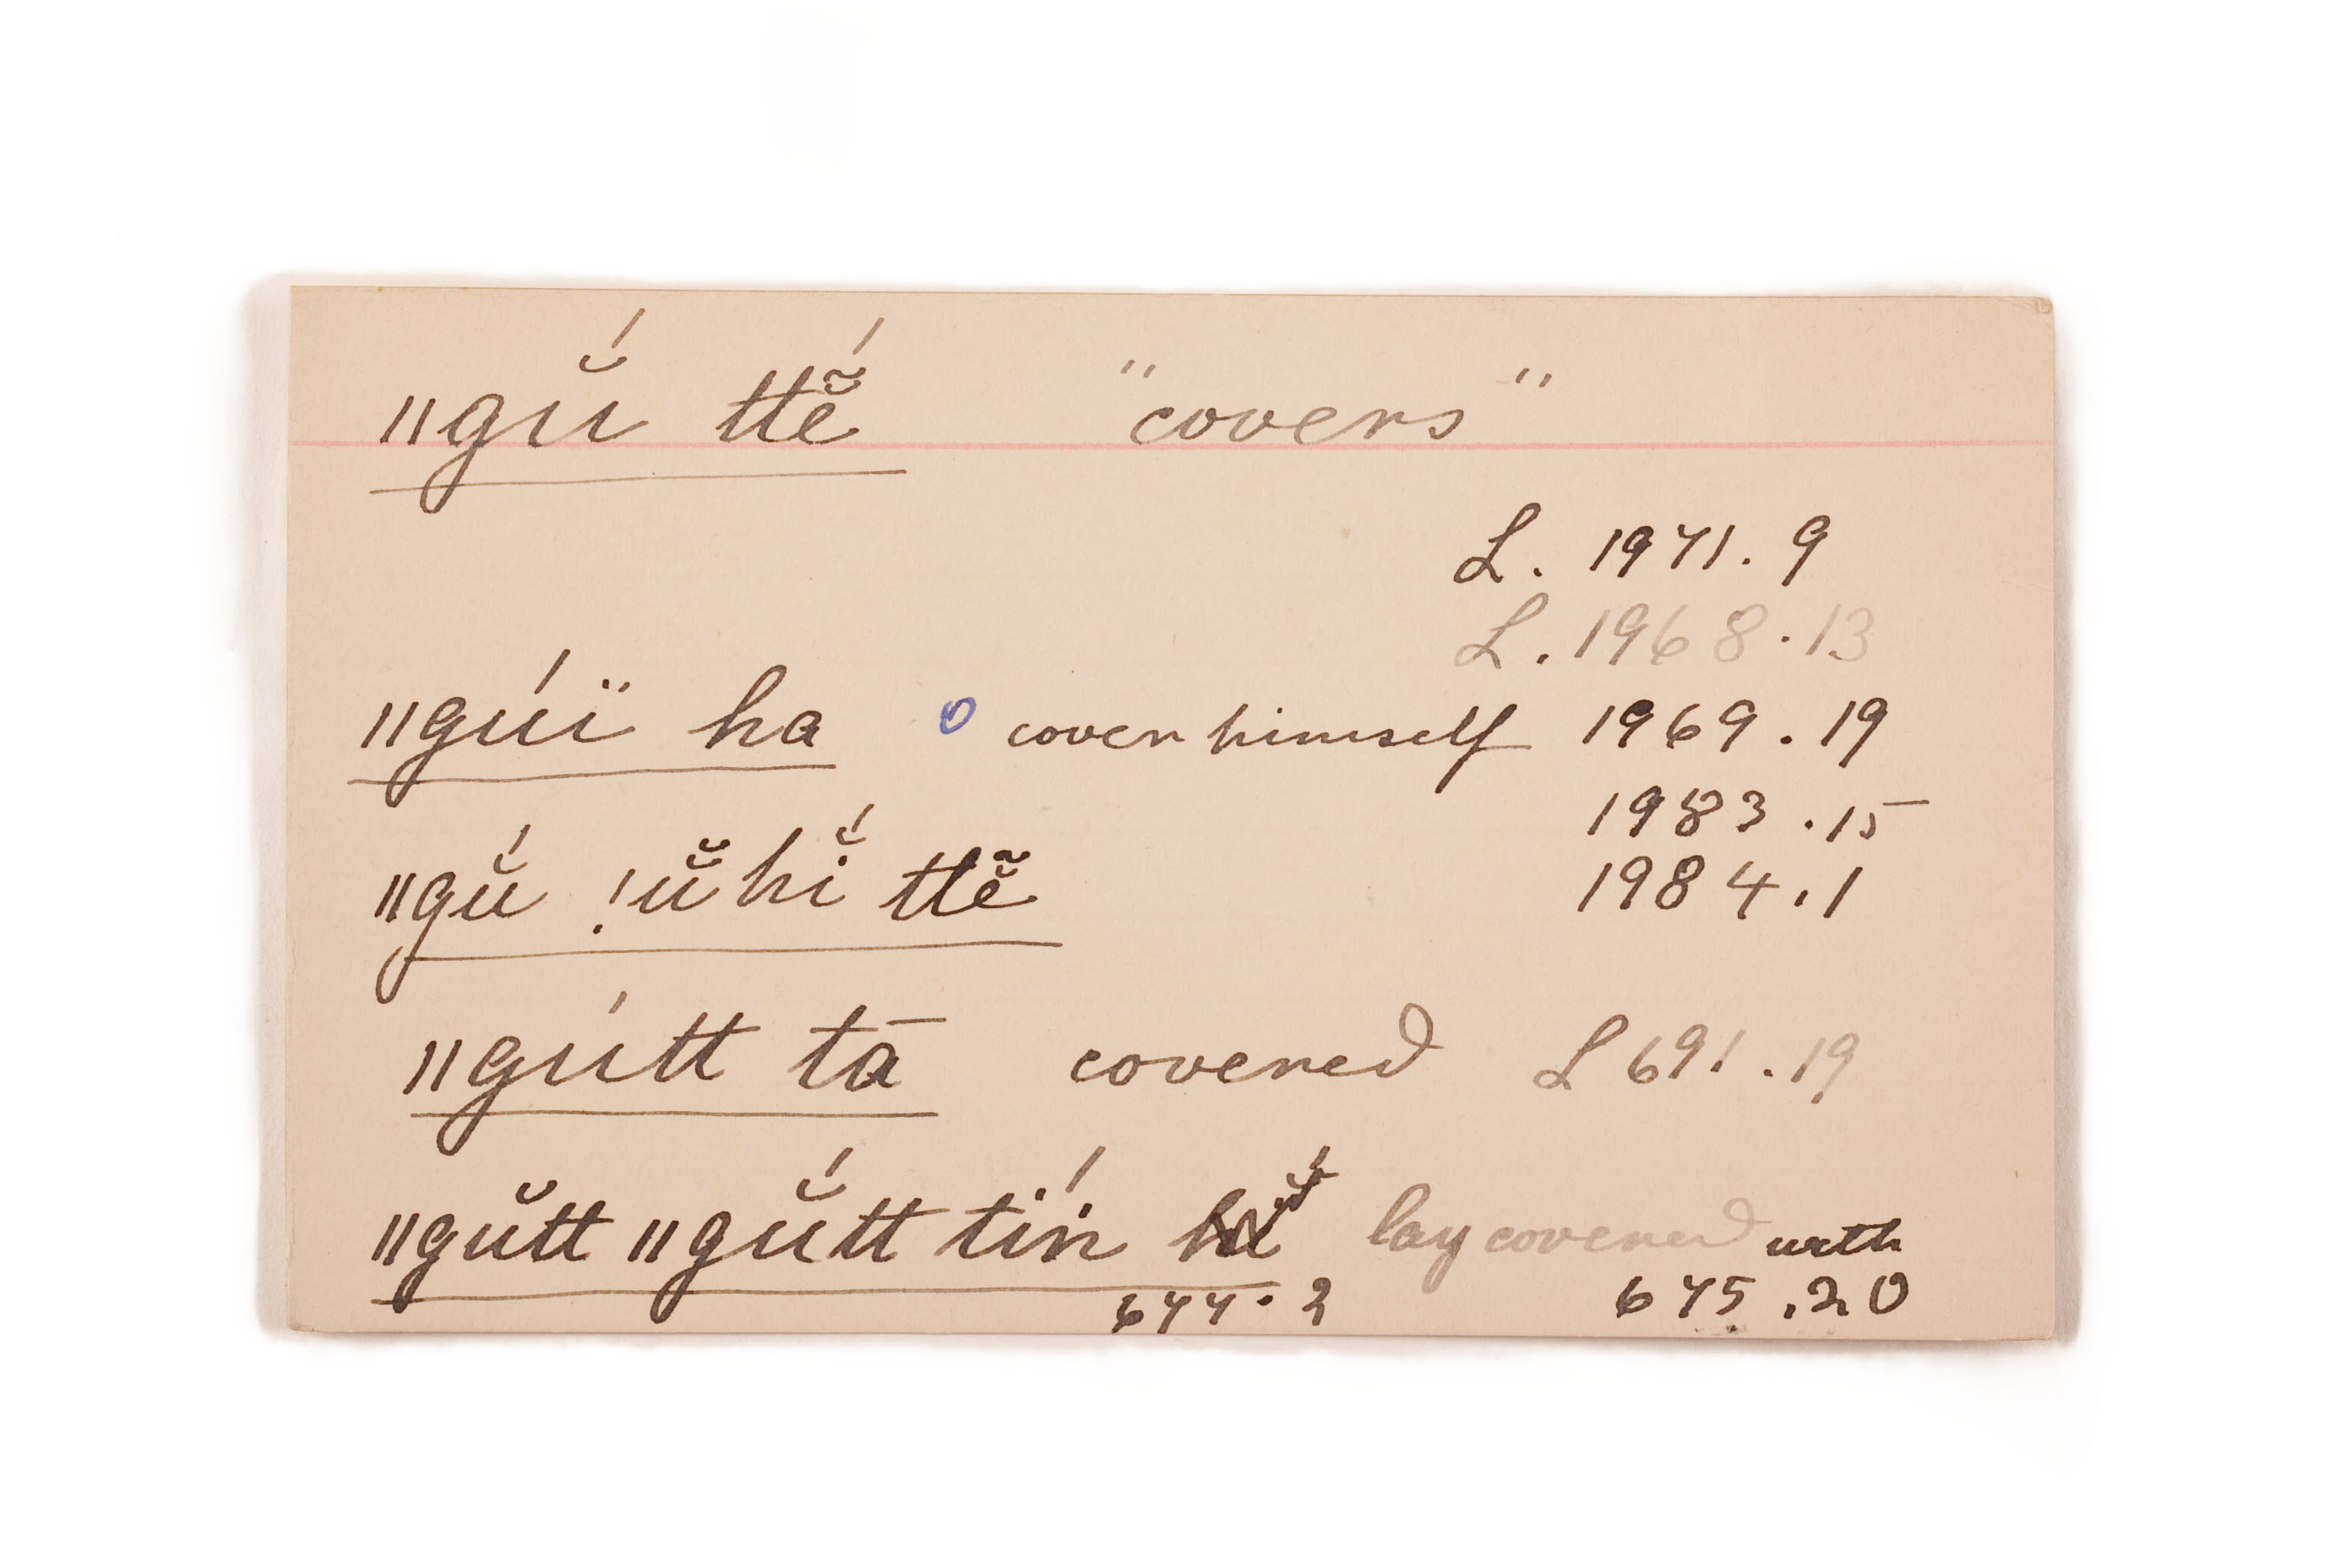 ǁgŭ́ ttẽ̆́ "covers"
L. 1971. 9
L. 1968.13
ǁgúï ha o cover himself 1969.19
1983.15
ǁgŭ́ !ŭ̆hĭ́ ttẽ̆ 1984.1
ǁgútt tā covered L 691.19
ǁgŭtt ǁgŭ́tt tiń lay covered with
677.2 675.20